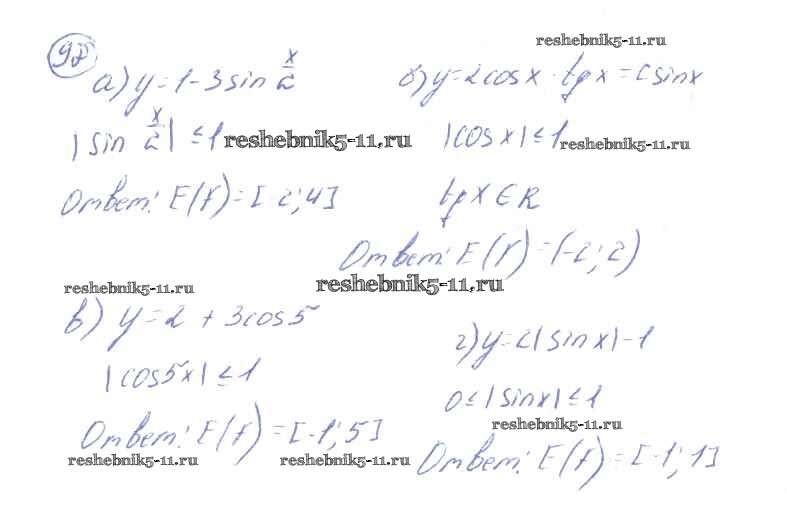 reshebnik5-11.ru
98
а) y = 1 - 3 sin x/2
б) y = 2 cos x · tg x = 2 sin x
|sin x/2| ≤ 1
reshebnik5-11.ru
|cos x| ≤ 1
reshebnik5-11.ru
Ответ: E(f) = [-2; 4]
tg x ∈ R
Ответ: E(f) = (-2; 2)
reshebnik5-11.ru
reshebnik5-11.ru
в) y = 2 + 3 cos 5
г) y = 2|sin x| - 1
|cos 5x| ≤ 1
0 ≤ |sin x| ≤ 1
reshebnik5-11.ru
Ответ: E(f) = [-1; 5]
Ответ: E(f) = [-1; 1]
reshebnik5-11.ru
reshebnik5-11.ru